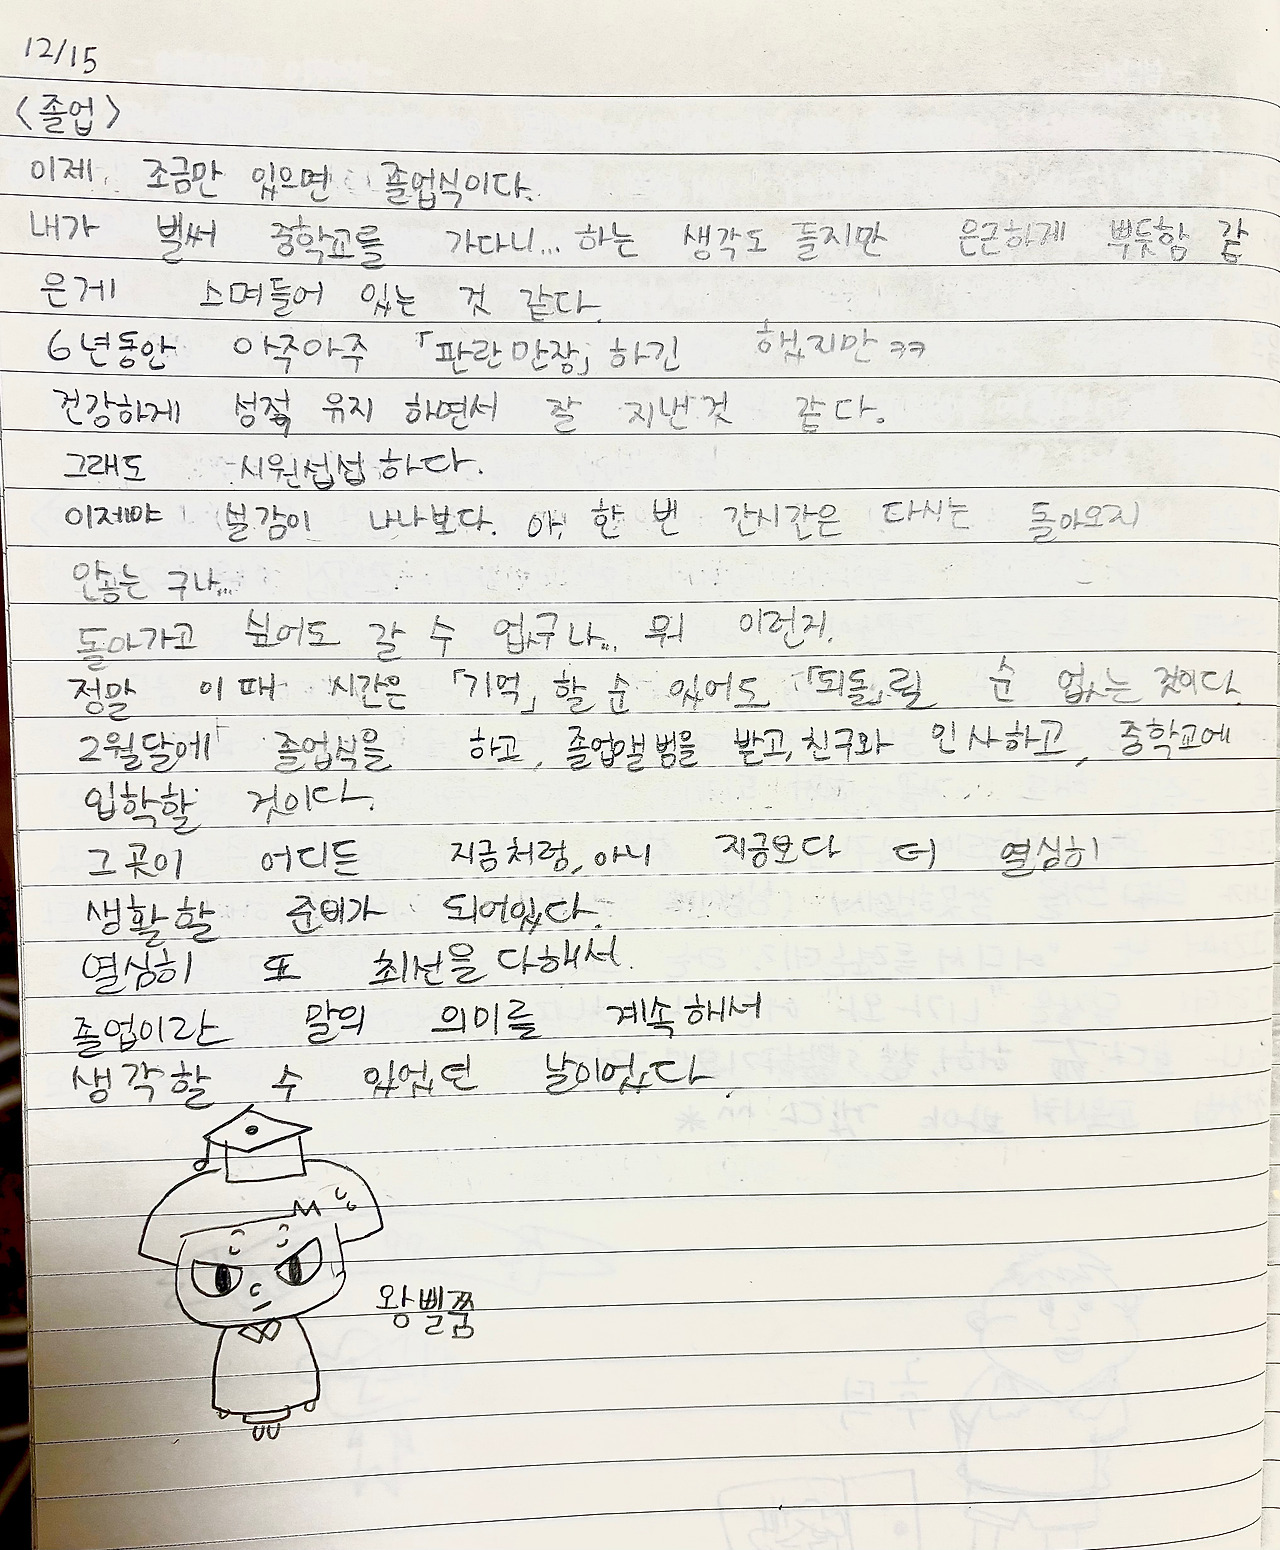 12/15
<졸업>
이제 조금만 있으면 졸업식이다.
내가 벌써 중학교를 가다니... 하는 생각도 들지만 은근하게 뿌듯함 같
은게 스며들어 있는 것 같다.
6년동안 아주아주 「판란만장」하긴 했지만ㅋㅋ
건강하게 성적 유지 하면서 잘 지낸것 같다.
그래도 시원섭섭하다.
이제야 실감이 나나보다. 아, 한 번 간시간은 다시는 돌아오지
안хо는 구나...
돌아가고 싶어도 갈 수 없구나... 뭐 이런지.
정말 이 때 시간은 「기억」할 순 있어도 「되돌」릴 순 없는 것이다.
2월달에 졸업식을 하고, 졸업앨범을 받고, 친구와 인사하고, 중학교에
입학할 것이다.
그곳이 어디든 지금처럼, 아니 지금보다 더 열심히
생활할 준비가 되어있다.
열심히 또 최선을 다해서.
졸업이란 말의 의미를 계속해서
생각할 수 있었던 날이었다.
왕삘쭘